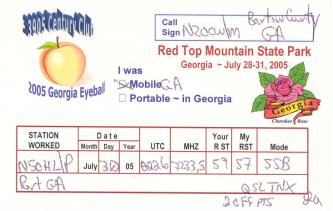 3905 Century Club
2005 Georgia Eyeball
Call Sign
GA
Red Top Mountain State Park
Georgia ~ July 28-31, 2005
I was
Mobile GA
Portable ~ in Georgia
Georgia
Cherokee Rose
STATION WORKED
Date
Month Day Year
UTC
MHZ
Your R ST
My RST
Mode
July 05 59 57 SSB
GA
QSL TNX
2 PTS